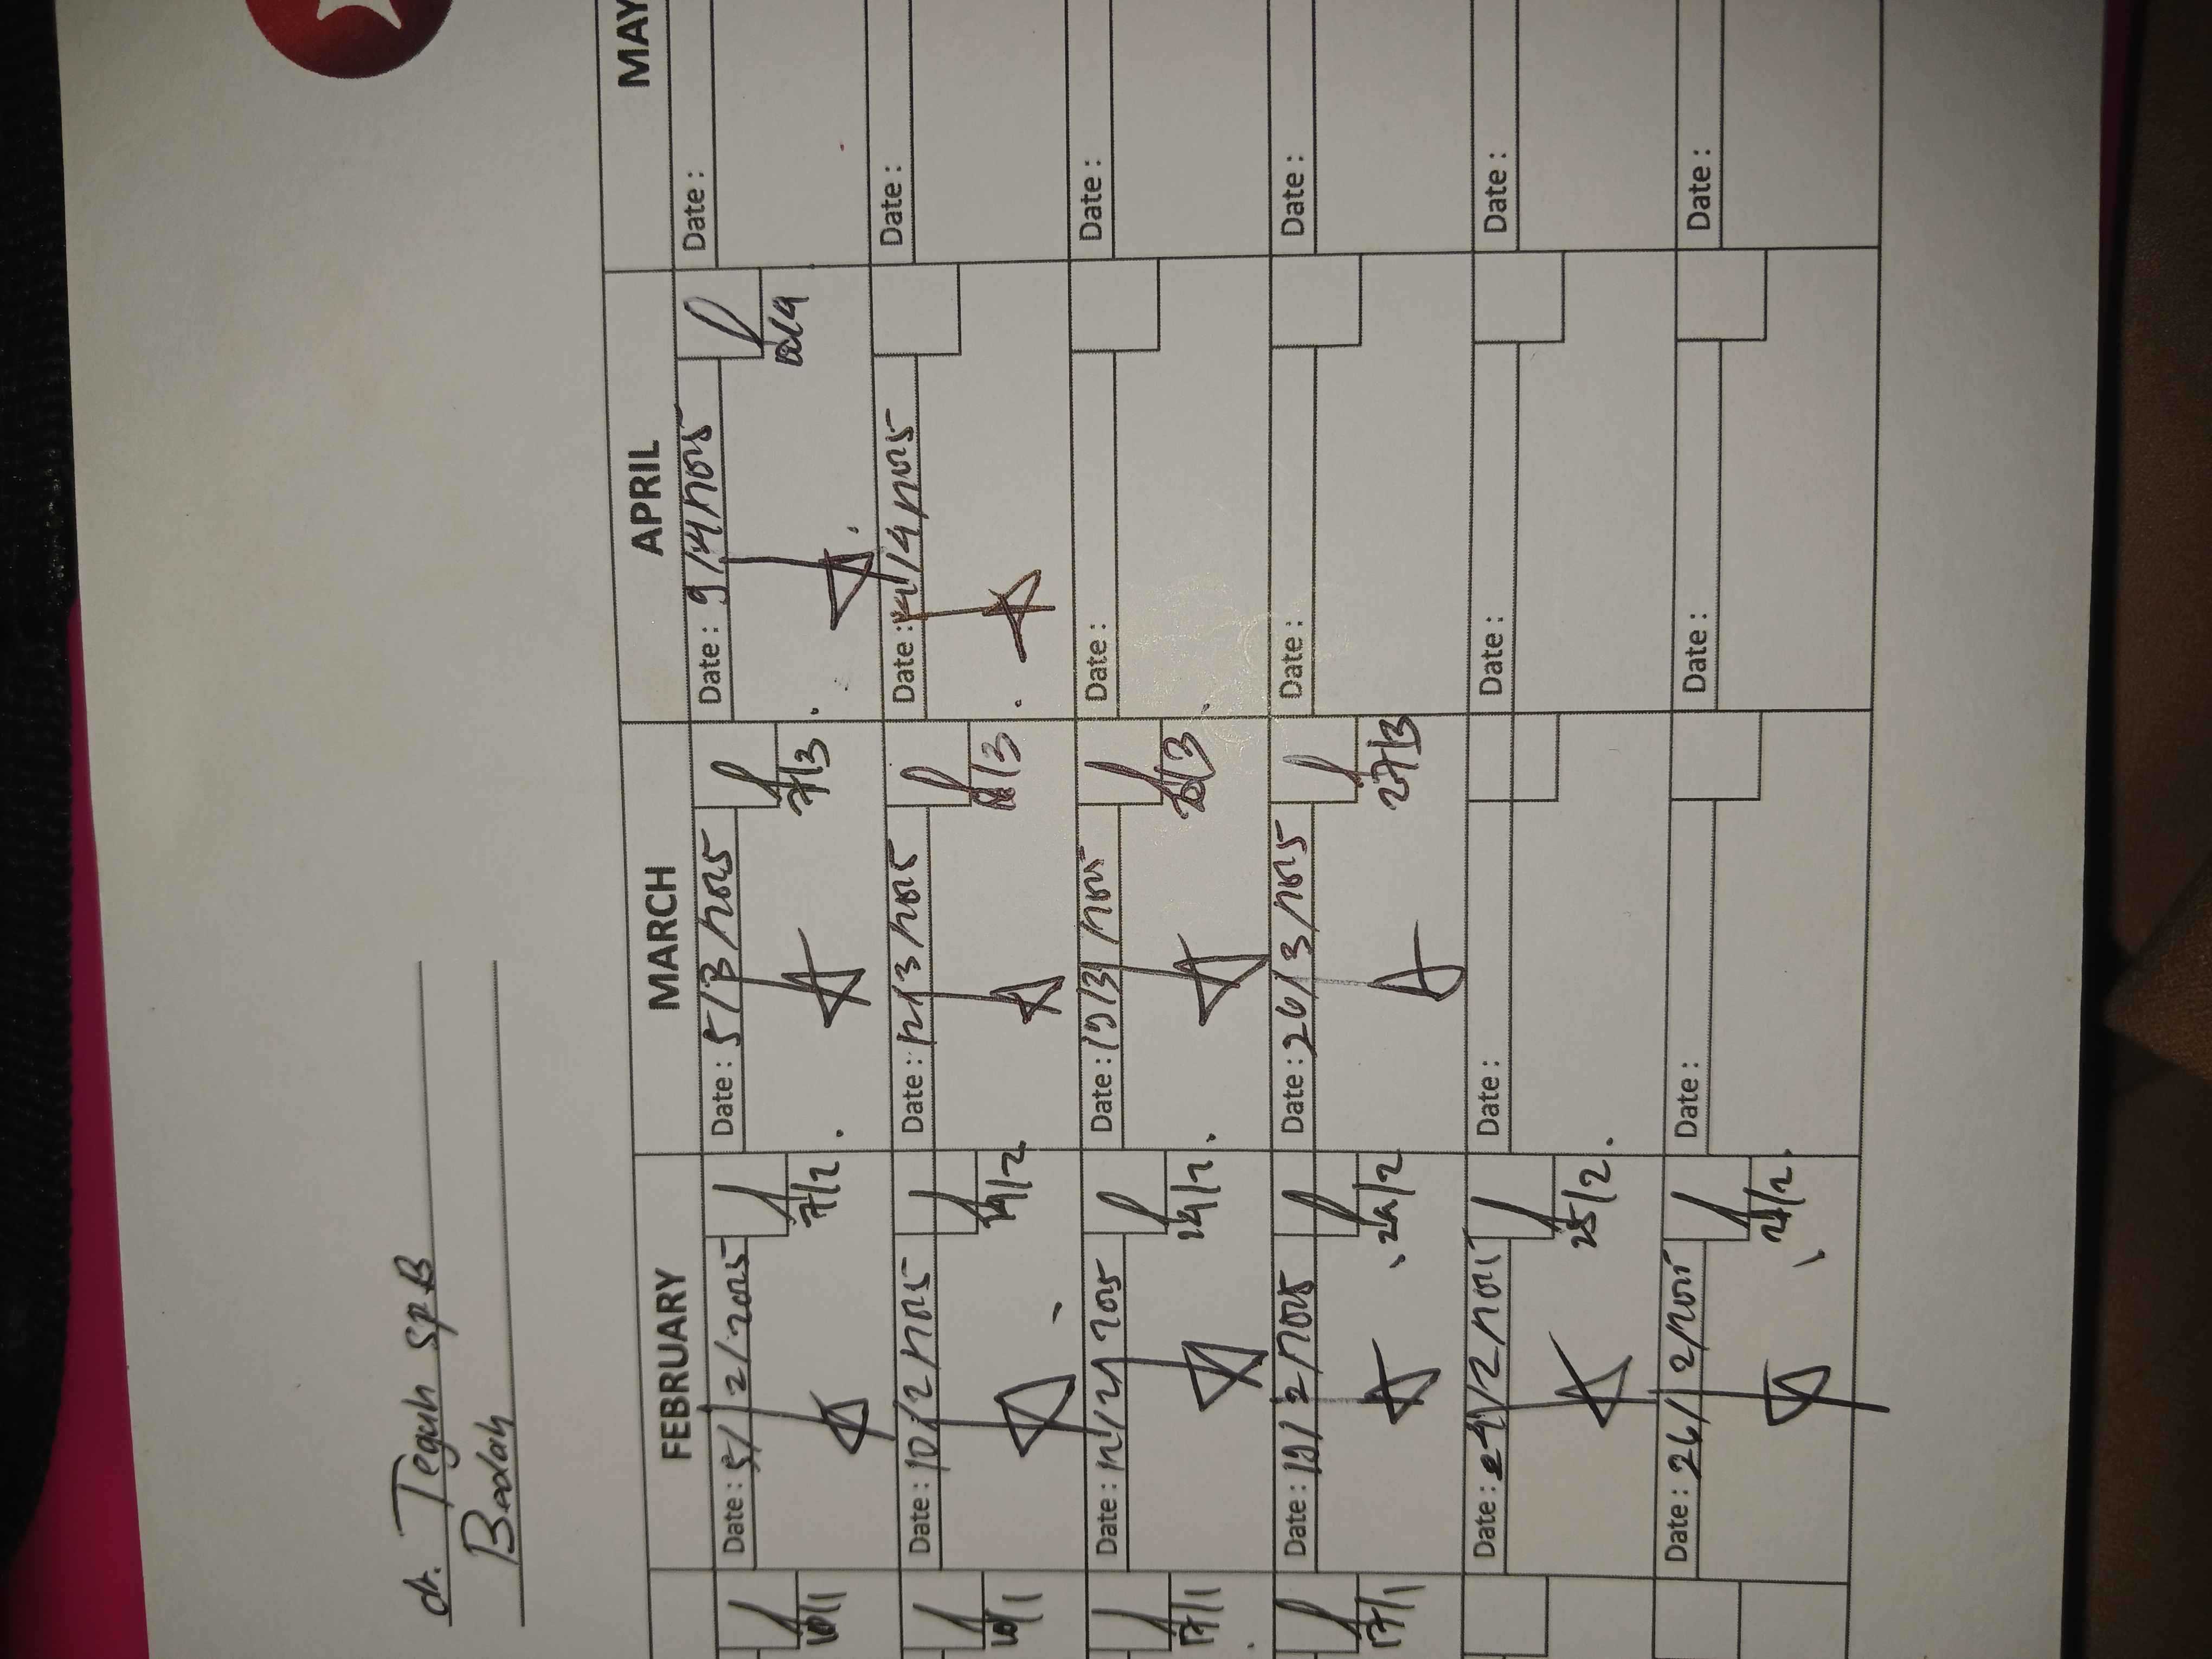 dr. Teguh SpB
Bedah
FEBRUARY MARCH APRIL MAY
10/1
Date: 5/2/2025 7/2
Date: 5/3/2025 7/3
Date: 9/4/2025
Date:
10/1
Date: 10/2/2025 14/2
Date: 12/3/2025
Date: 14/4/2025
Date:
17/1
Date: 12/2/2025 24/2
Date: 19/3/2025
Date:
Date:
17/1
Date: 19/2/2025 24/2
Date: 26/3/2025 27/3
Date:
Date:
Date: 24/2/2025 25/2
Date:
Date:
Date:
Date: 26/2/2025
Date:
Date:
Date: